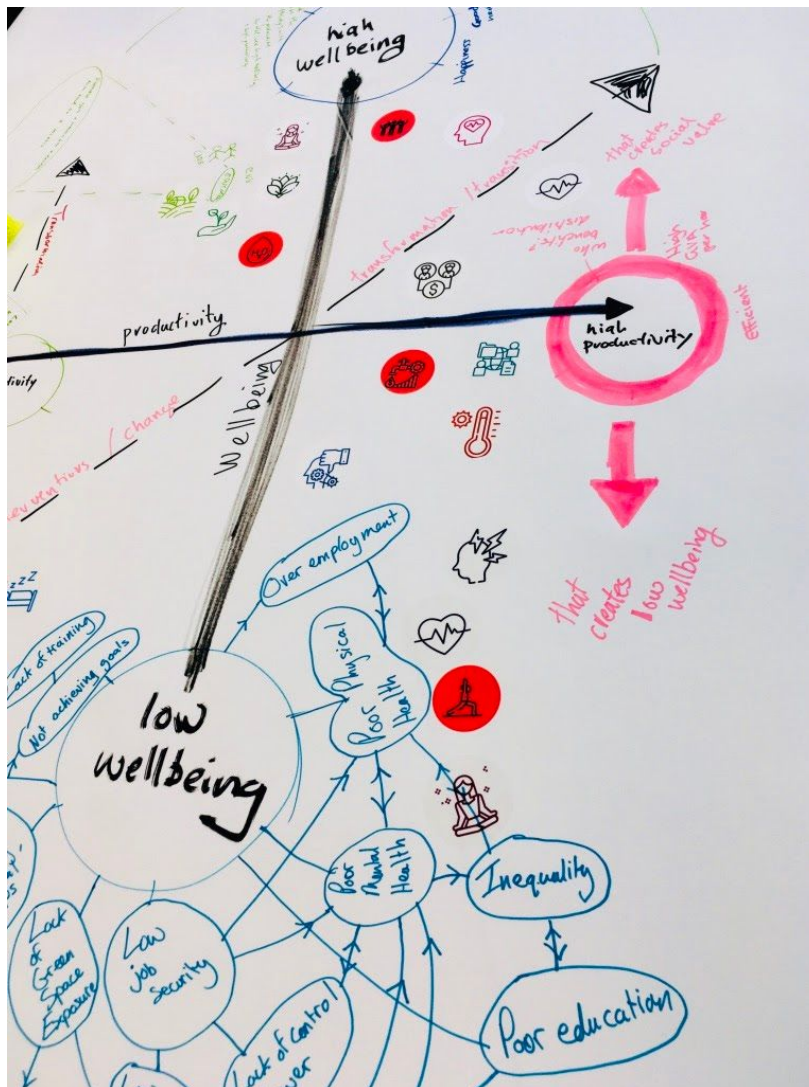 high
wellbeing
Happiness
Transformation
transformation / transition
that
creates
social
value
who
benefits?
distribution
High
GVA
per hour
efficient
productivity
high
productivity
Wellbeing
/ change
that
creates
low
wellbeing
zzz
Over employment
Lack of training
Not achieving goals
low
wellbeing
Poor Physical
Health
Poor
Mental
Health
Inequality
Lack
of
Green
Space
Exposure
Low
job
security
Lack of control
Poor education